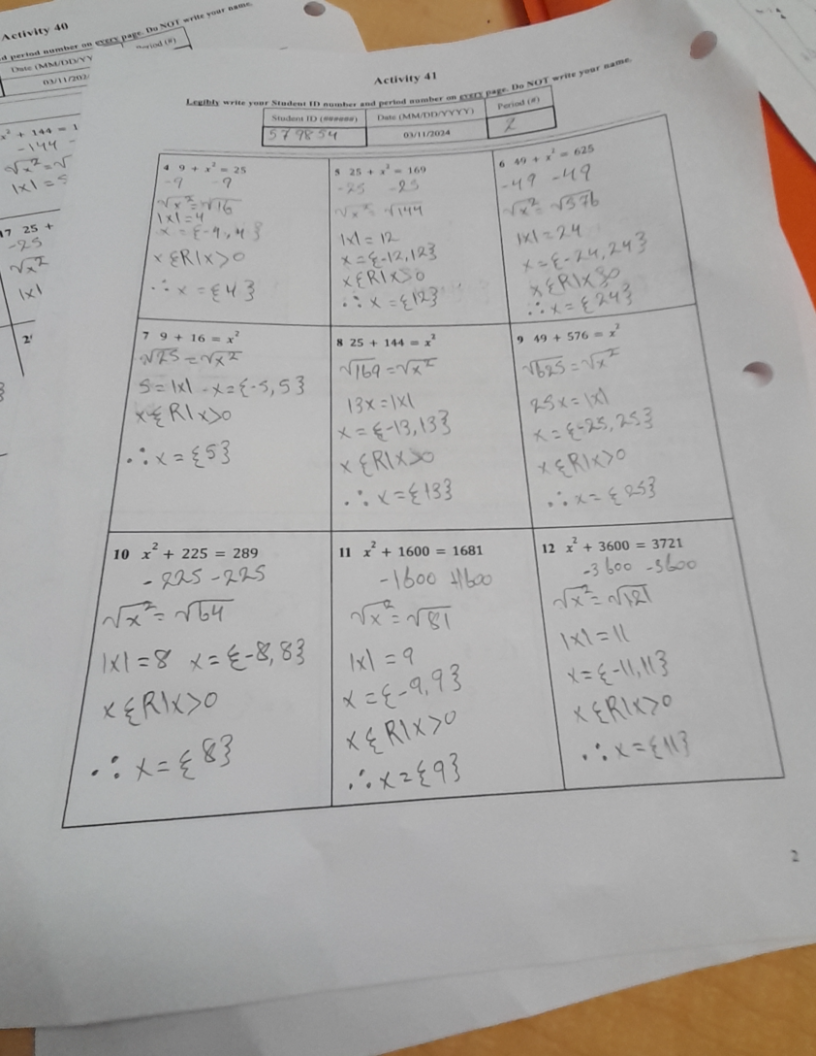 Activity 40
d period number on every page. Do NOT write your name.
Date (MM/DD/YY
Period (#)
03/11/202
x² + 144 = 1
-144 -
√x² = √
|x| = 5
17 25 +
-25
√x²
|x|
2
Activity 41
Legibly write your Student ID number and period number on every page. Do NOT write your name.
Student ID (######) Date (MM/DD/YYYY) Period (#)
579854 03/11/2024 2
4 9 + x² = 25
-9 -9
√x² = √16
|x| = 4
x = {-4,4}
x {R|x>0
∴ x = {4}
5 25 + x² = 169
-25 -25
√x² = √144
|x| = 12
x = {-12,12}
x {R|x>0
∴ x = {12}
6 49 + x² = 625
-49 -49
√x² = √576
|x| = 24
x = {-24,24}
x {R|x>0
∴ x = {24}
7 9 + 16 = x²
√25 = √x²
5 = |x| x = {-5,5}
x {R|x>0
∴ x = {5}
8 25 + 144 = x²
√169 = √x²
13x = |x|
x = {-13,13}
x {R|x>0
∴ x = {13}
9 49 + 576 = x²
√625 = √x²
25x = |x|
x = {-25,25}
x {R|x>0
∴ x = {25}
10 x² + 225 = 289
-225 -225
√x² = √64
|x| = 8 x = {-8,8}
x {R|x>0
∴ x = {8}
11 x² + 1600 = 1681
-1600 -1600
√x² = √81
|x| = 9
x = {-9,9}
x {R|x>0
∴ x = {9}
12 x² + 3600 = 3721
-3600 -3600
√x² = √121
|x| = 11
x = {-11,11}
x {R|x>0
∴ x = {11}
2